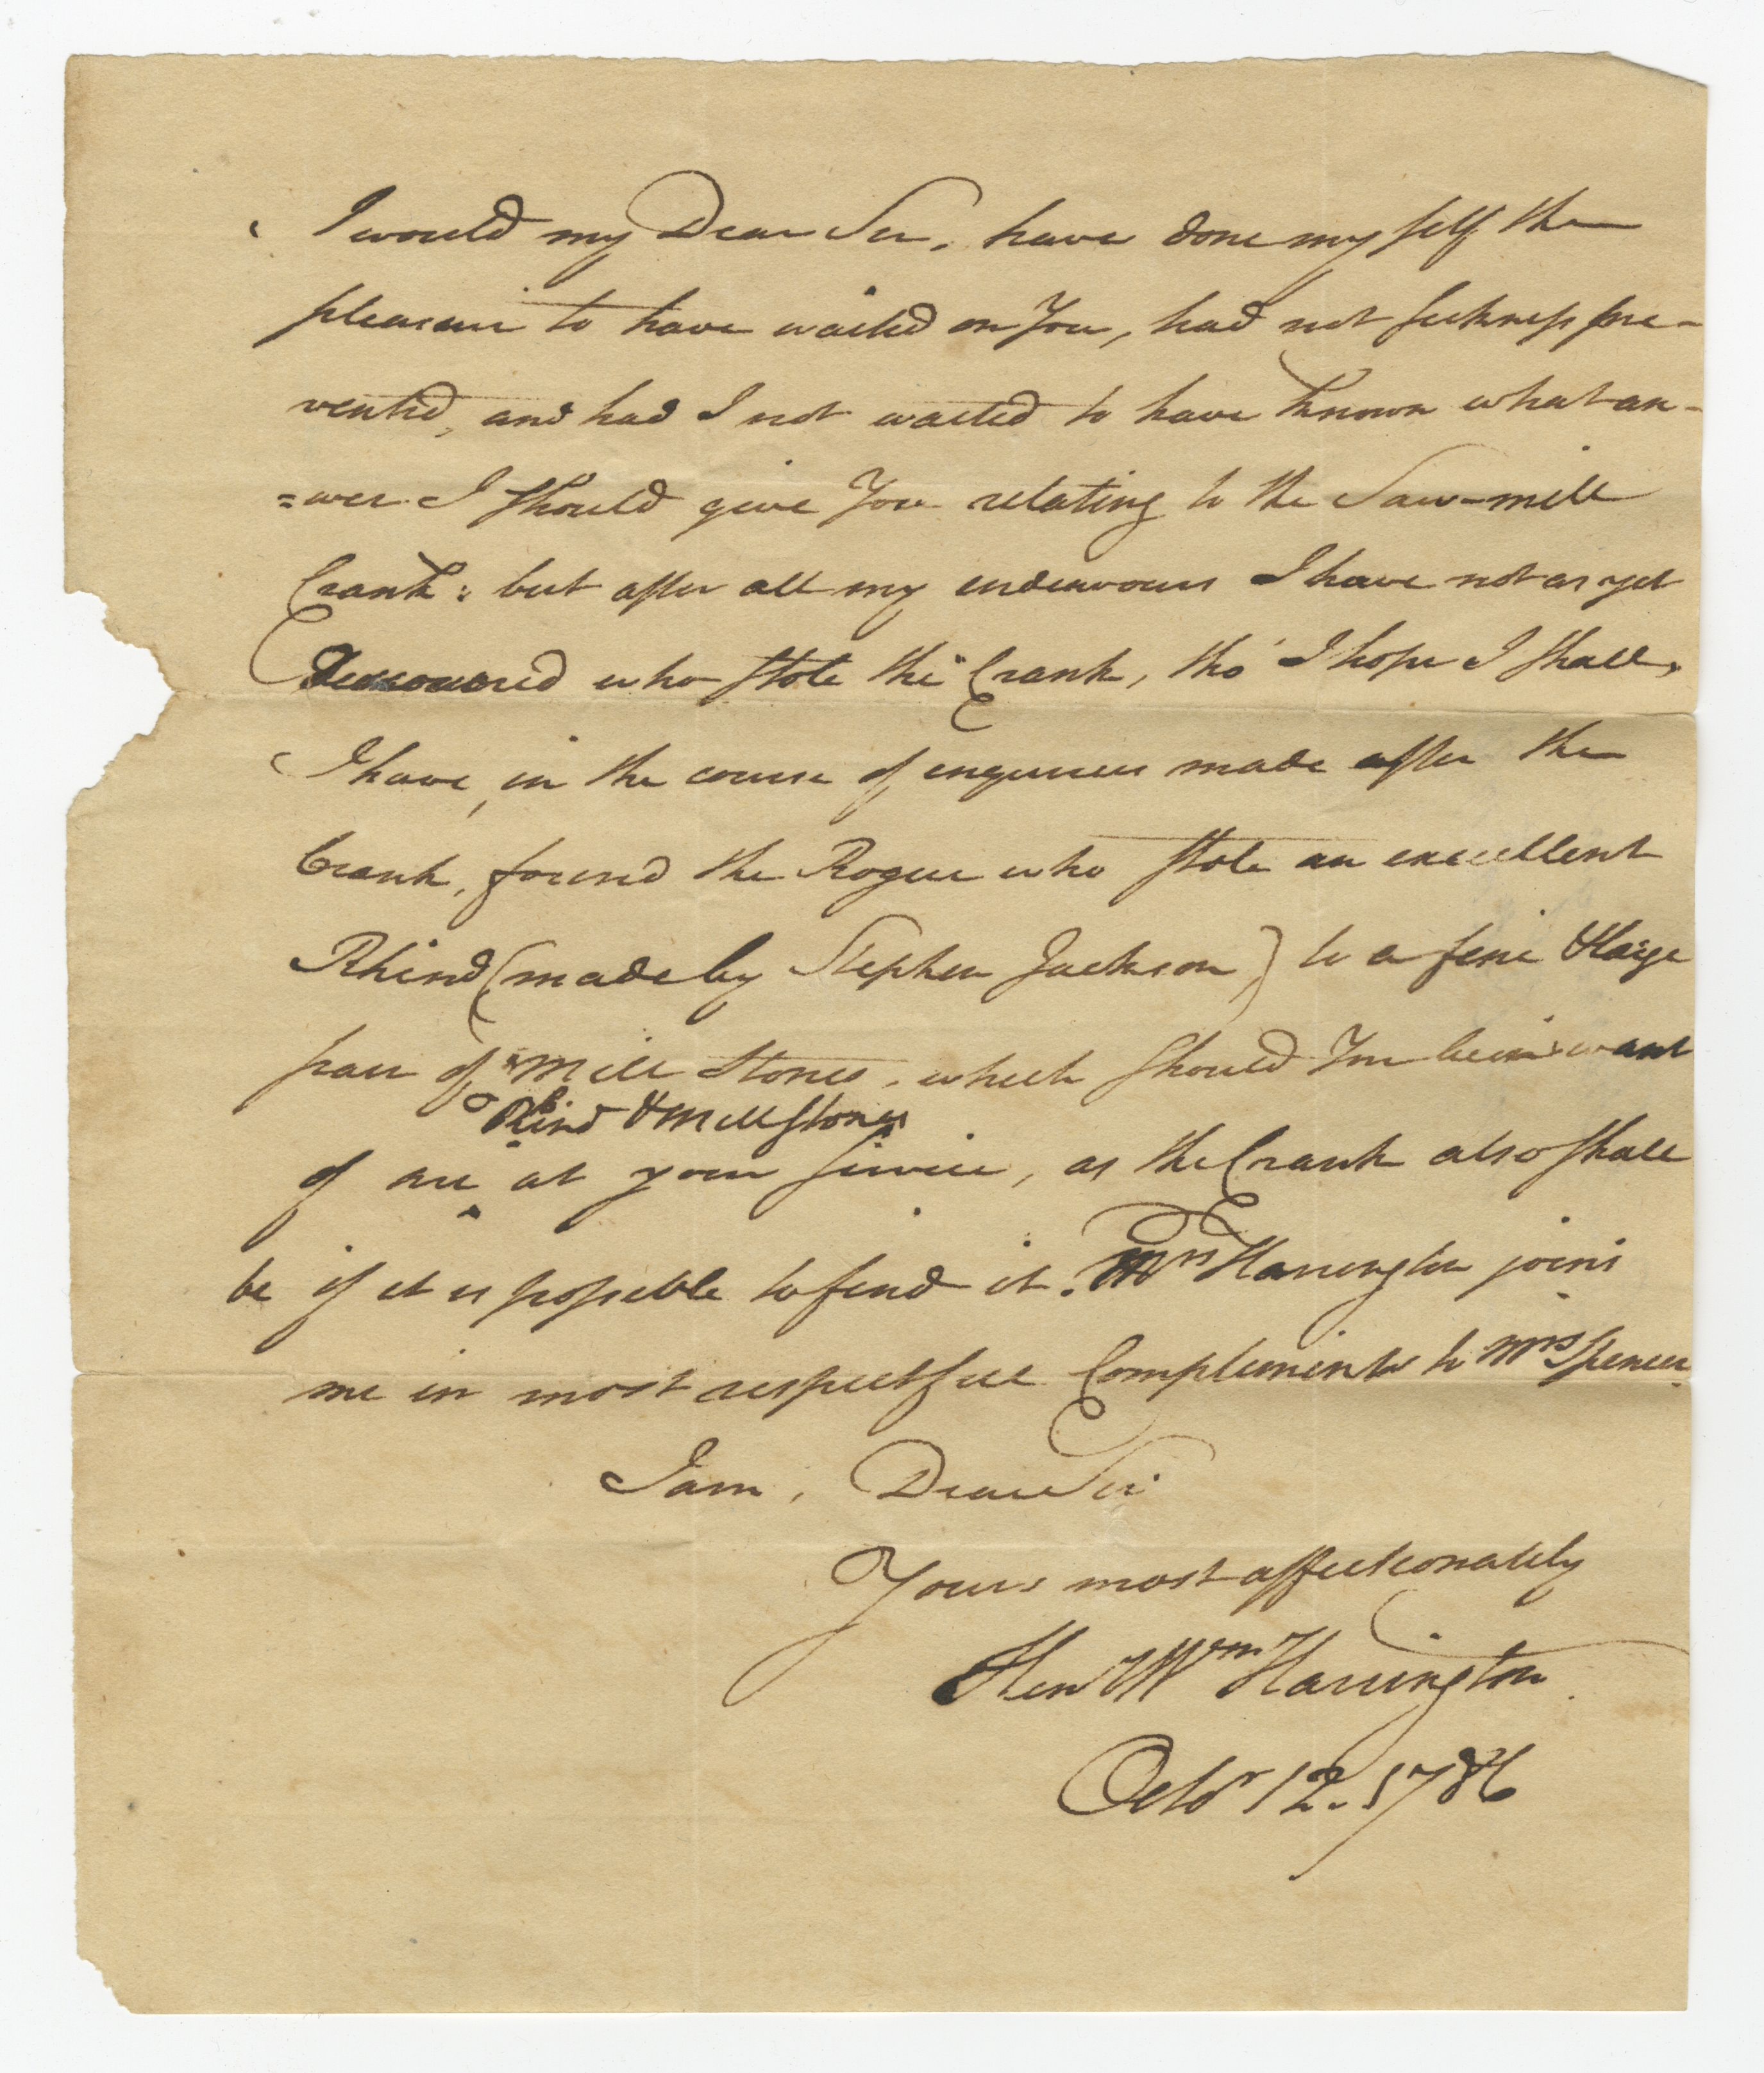 I would my Dear Sir, have done my self the
pleasure to have waited on You, had not sickness pre-
vented, and had I not waited to have known what an-
=wer I should give You relating to the Saw-mill
Crank: but after all my endeavours I have not as yet
Discovered who stole the Crank, tho' I hope I shall,
I have, in the course of enquiries made after the
Crank, found the Rogue who stole an excellent
Rhind (made by Stephen Jackson) to a fine & large
pair of Mill Stones, which should You be in want
Rhind & Mill stones
of are ^ at your service, as the Crank also shall
be if it is possible to find it. Mrs Harrington joins
me in most respectful Compliments to Mrs Spencer.
I am, Dear Sir
Yours most affectionately
Hen Wm Harrington
Octor 12. 1786